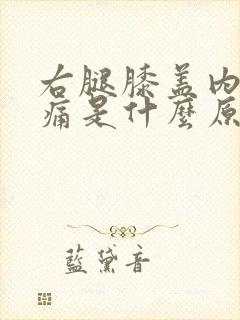 右腿膝盖内
痛是什麼原
藍黛音